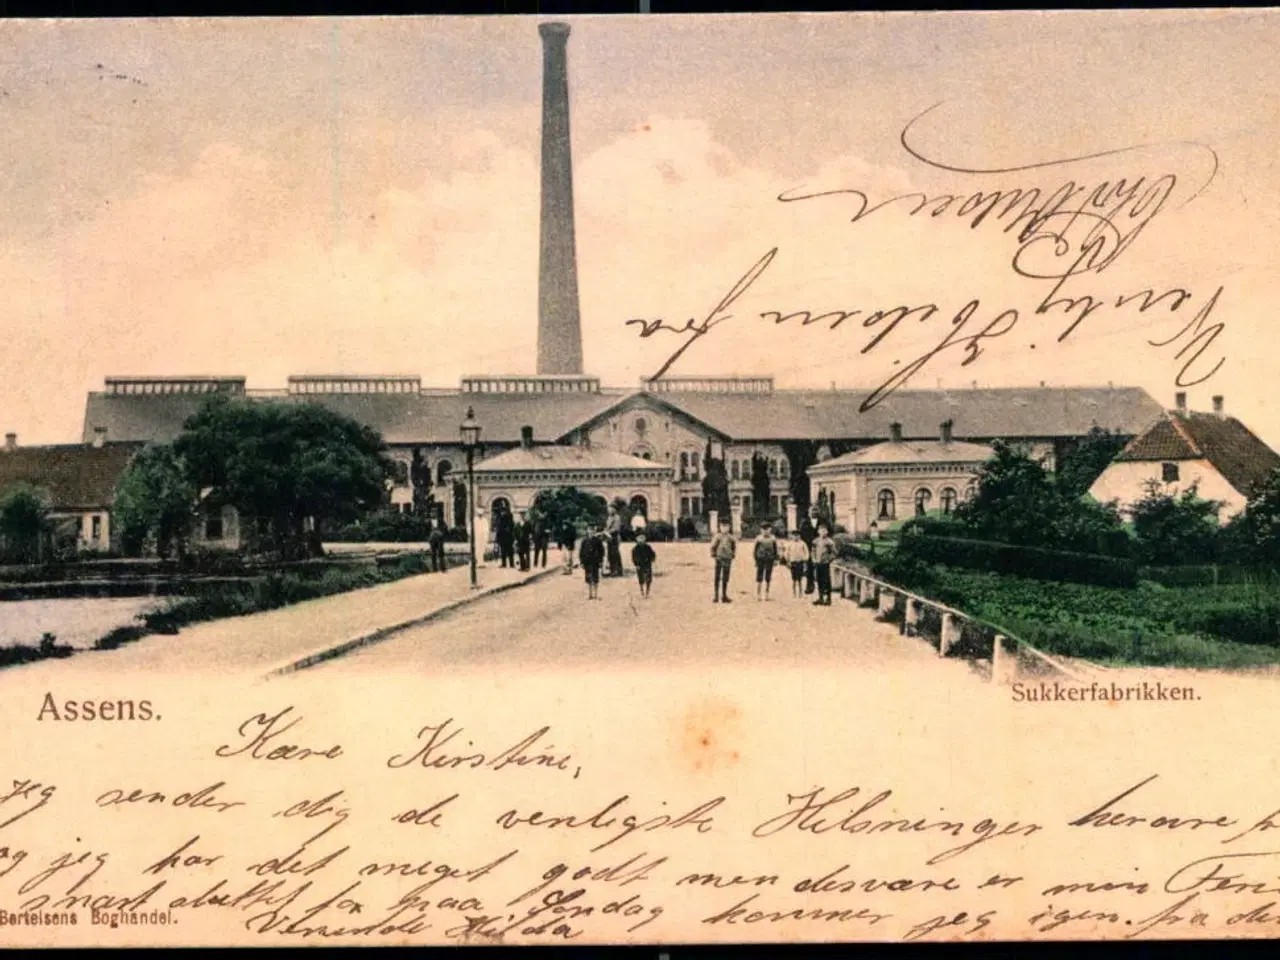 Venlig Hilsen fra
Assens.
Sukkerfabrikken.
Kære Kirstine,
jeg sender dig de venligste Hilsninger herovre fr
og jeg har det meget godt men desværre er min Feri
snart sluttet for paa Søndag kommer jeg igen. fra din
Bertelsens Boghandel.
Veninde Hilda